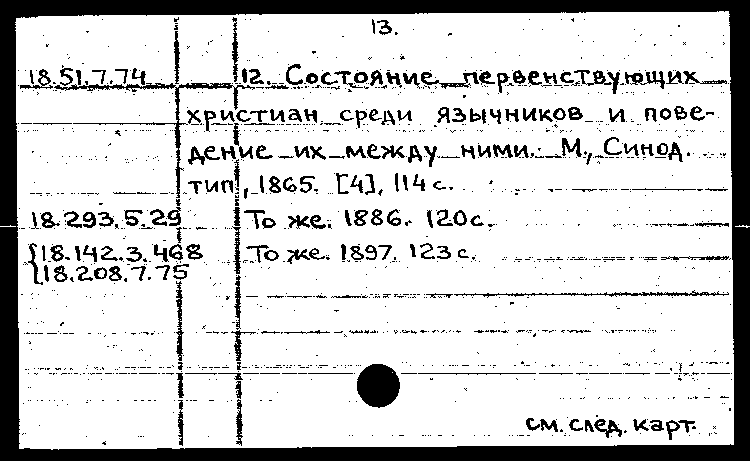 13.
18.51.7.74 12. Состояние первенствующих
христиан среди язычников и пове-
дение их между ними. М., Синод.
тип., 1865. [4], 114 с.
18.293.5.29 То же. 1886. 120 с.
{18.142.3.468 То же. 1897. 123 с.
{18.208.7.75
см. след. карт.